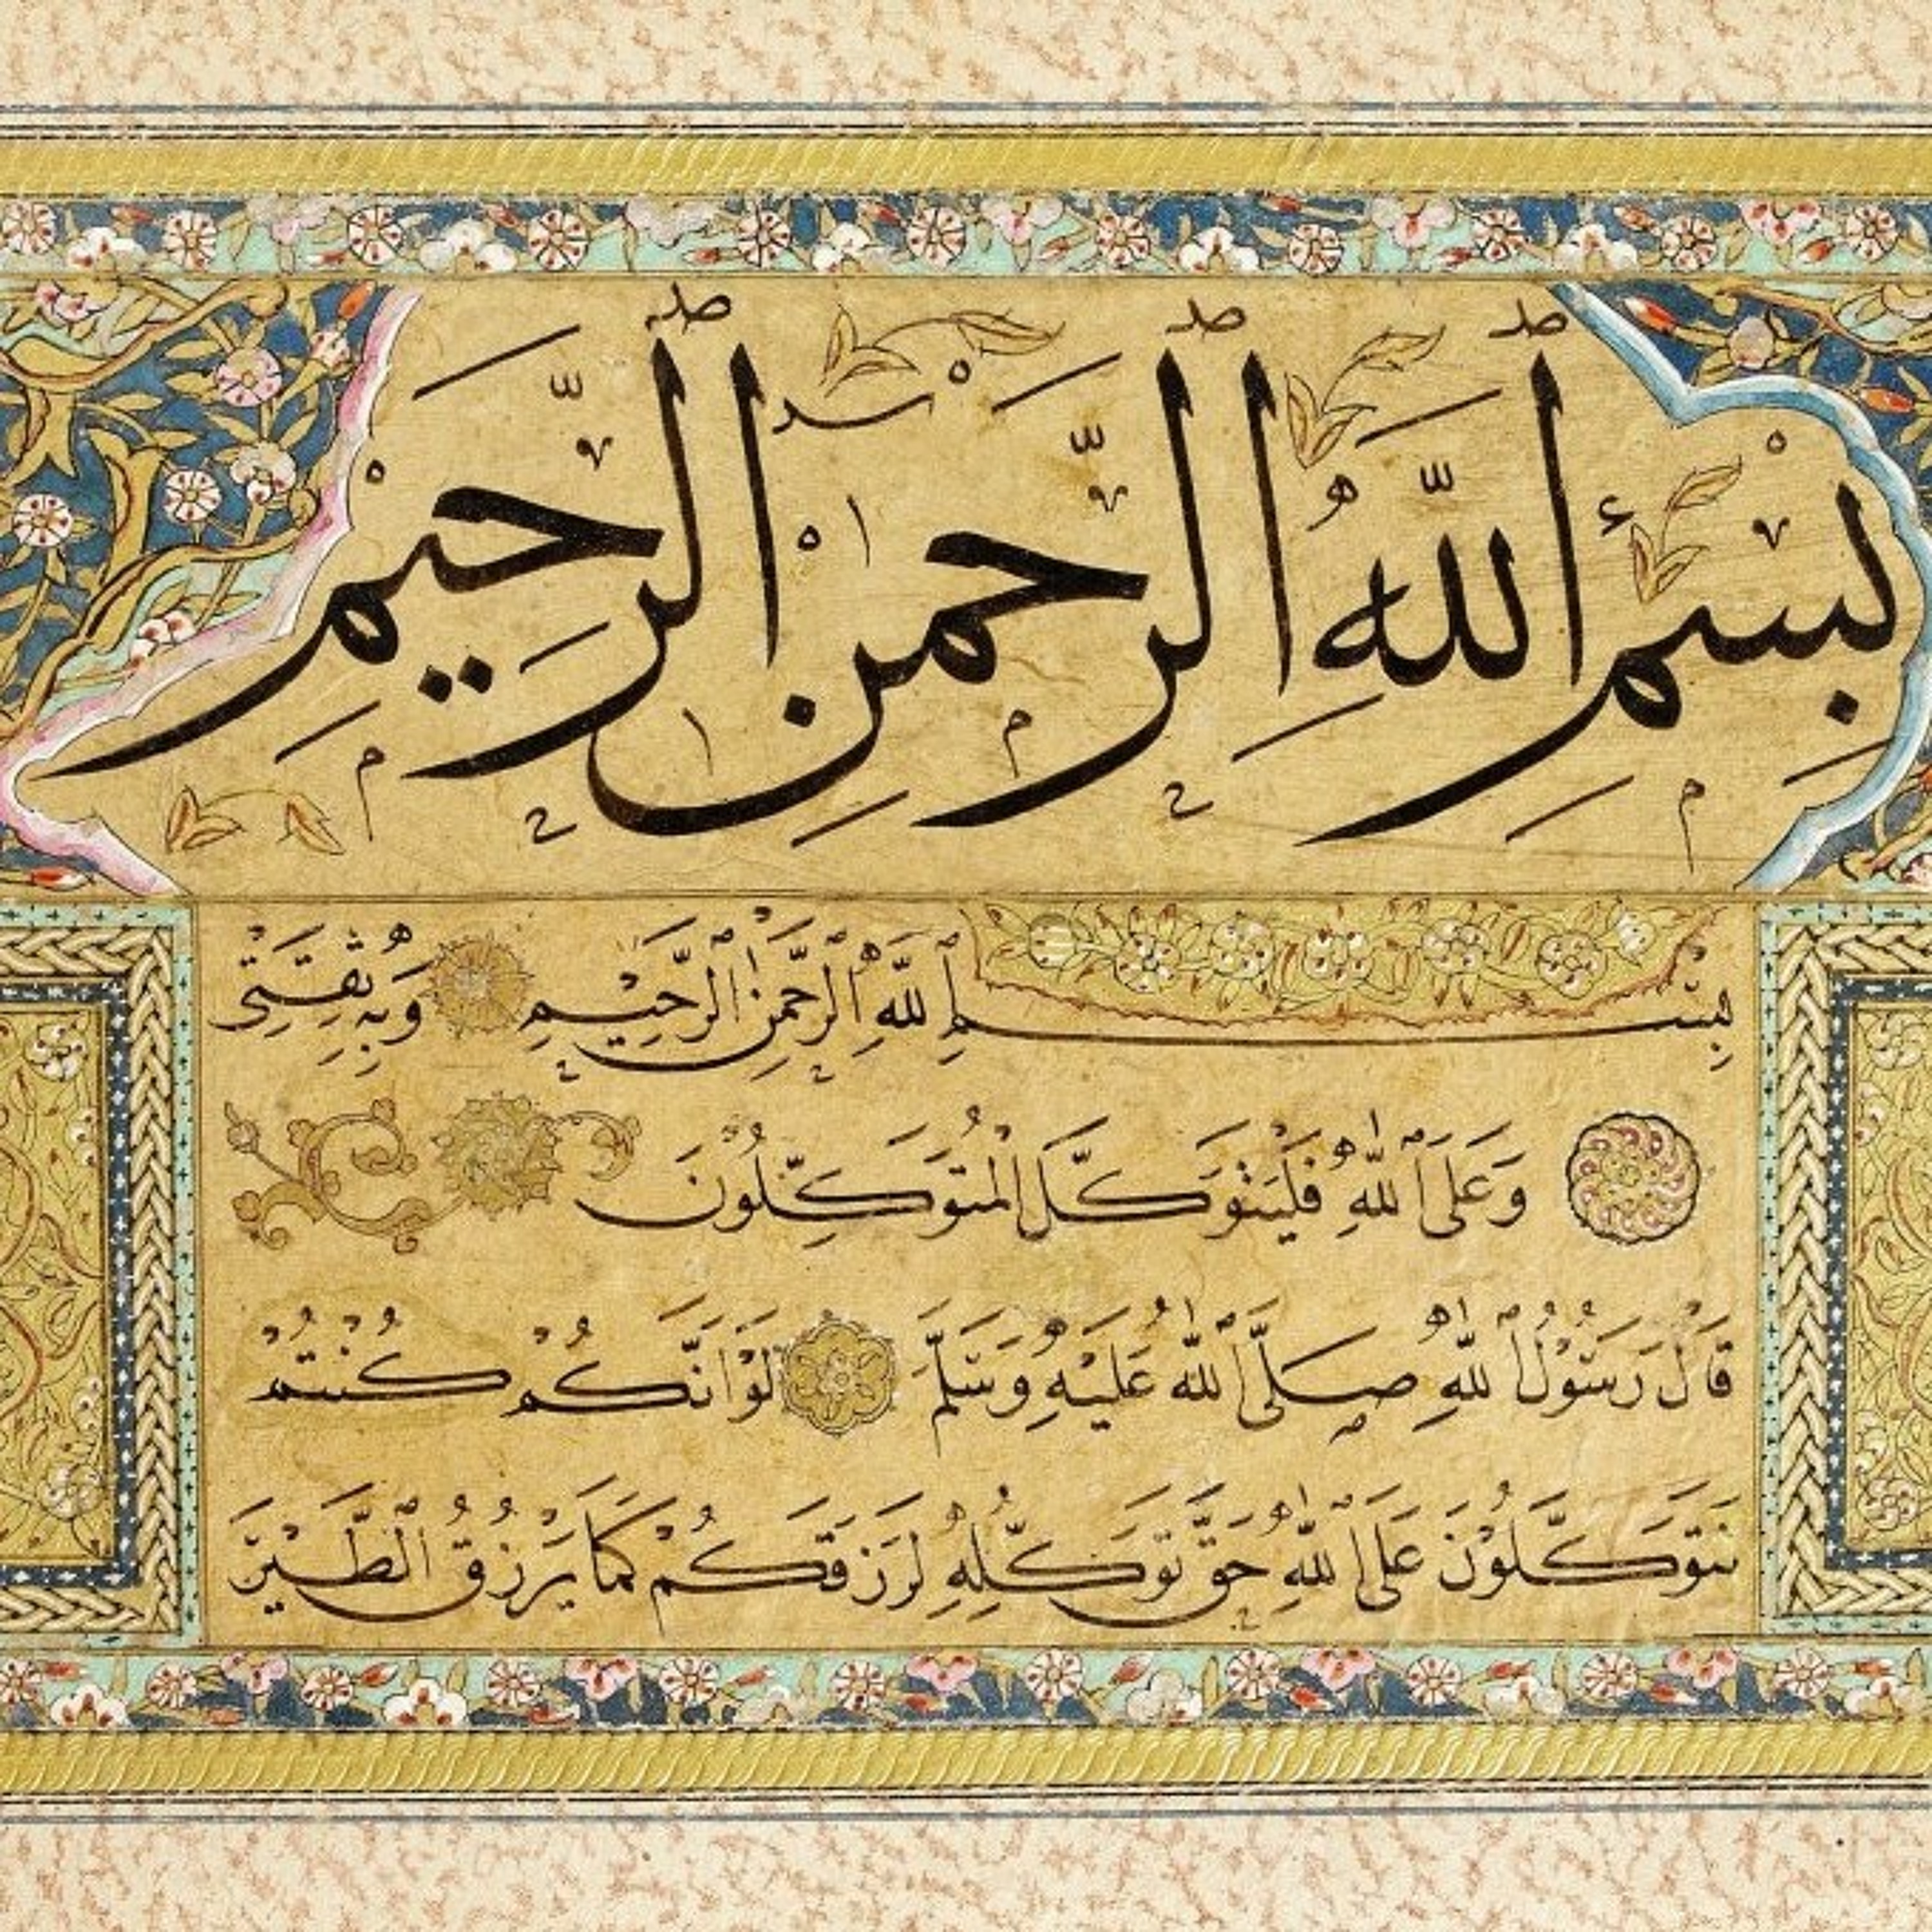 بِسْمِ ٱللَّهِ ٱلرَّحْمٰنِ ٱلرَّحِيمِ
بِسْمِ ٱللَّهِ ٱلرَّحْمٰنِ ٱلرَّحِيْمِ وَبِهِ ثِقَتِيْ
وَعَلَى ٱللّٰهِ فَلْيَتَوَكَّلِ الْمُتَوَكِّلُوْنَ
قَالَ رَسُوْلُ ٱللّٰهِ صَلَّى ٱللّٰهُ عَلَيْهِ وَسَلَّمَ لَوْ اَنَّكُمْ كُنْتُمْ
تَتَوَكَّلُوْنَ عَلَى ٱللّٰهِ حَقَّ تَوَكُّلِهِ لَرَزَقَكُمْ كَمَا يَرْزُقُ ٱلطَّيْرَ